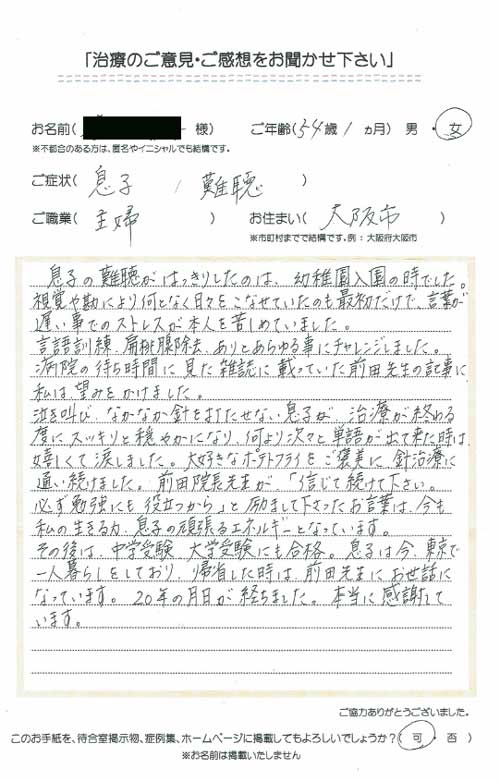 「治療のご意見・ご感想をお聞かせ下さい」
お名前( 様) ご年齢(54歳1ヵ月) 男・女
※不都合のある方は、匿名やイニシャルでも結構です。
ご症状( 息子 / 難聴 )
ご職業( 主婦 ) お住まい( 大阪市 )
※市町村までで結構です。例：大阪府大阪市
息子の難聴がはっきりしたのは、幼稚園入園の時でした。
視覚や勘により何となく日々をこなせていたのも最初だけで、言葉が
遅い事でのストレスが本人を苦しめていました。
言語訓練、扁桃腺除去、ありとあらゆる事にチャレンジしました。
病院の待ち時間に見た雑誌に載っていた前田先生の記事に
私は望みをかけました。
泣き叫び、なかなか針を打たせない息子が、治療が終わる
度にスッキリと穏やかになり、何より次々と単語が出て来た時は、
嬉しくて涙しました。大好きなポテトフライをご褒美に、針治療に
通い続けました。前田院長先生が、「信じて続けて下さい。
必ず勉強にも役立つから」と励まして下さったお言葉は、今も
私の生きる力、息子の頑張るエネルギーとなっています。
その後は、中学受験、大学受験にも合格。息子は今、東京で
一人暮らしをしており、帰省した時は、前田先生にお世話に
なっています。20年の月日が経ちました。本当に感謝して
います。
ご協力ありがとうございました。
このお手紙を、待合室掲示物、症例集、ホームページに掲載してもよろしいでしょうか？(可・否)
※お名前は掲載いたしません